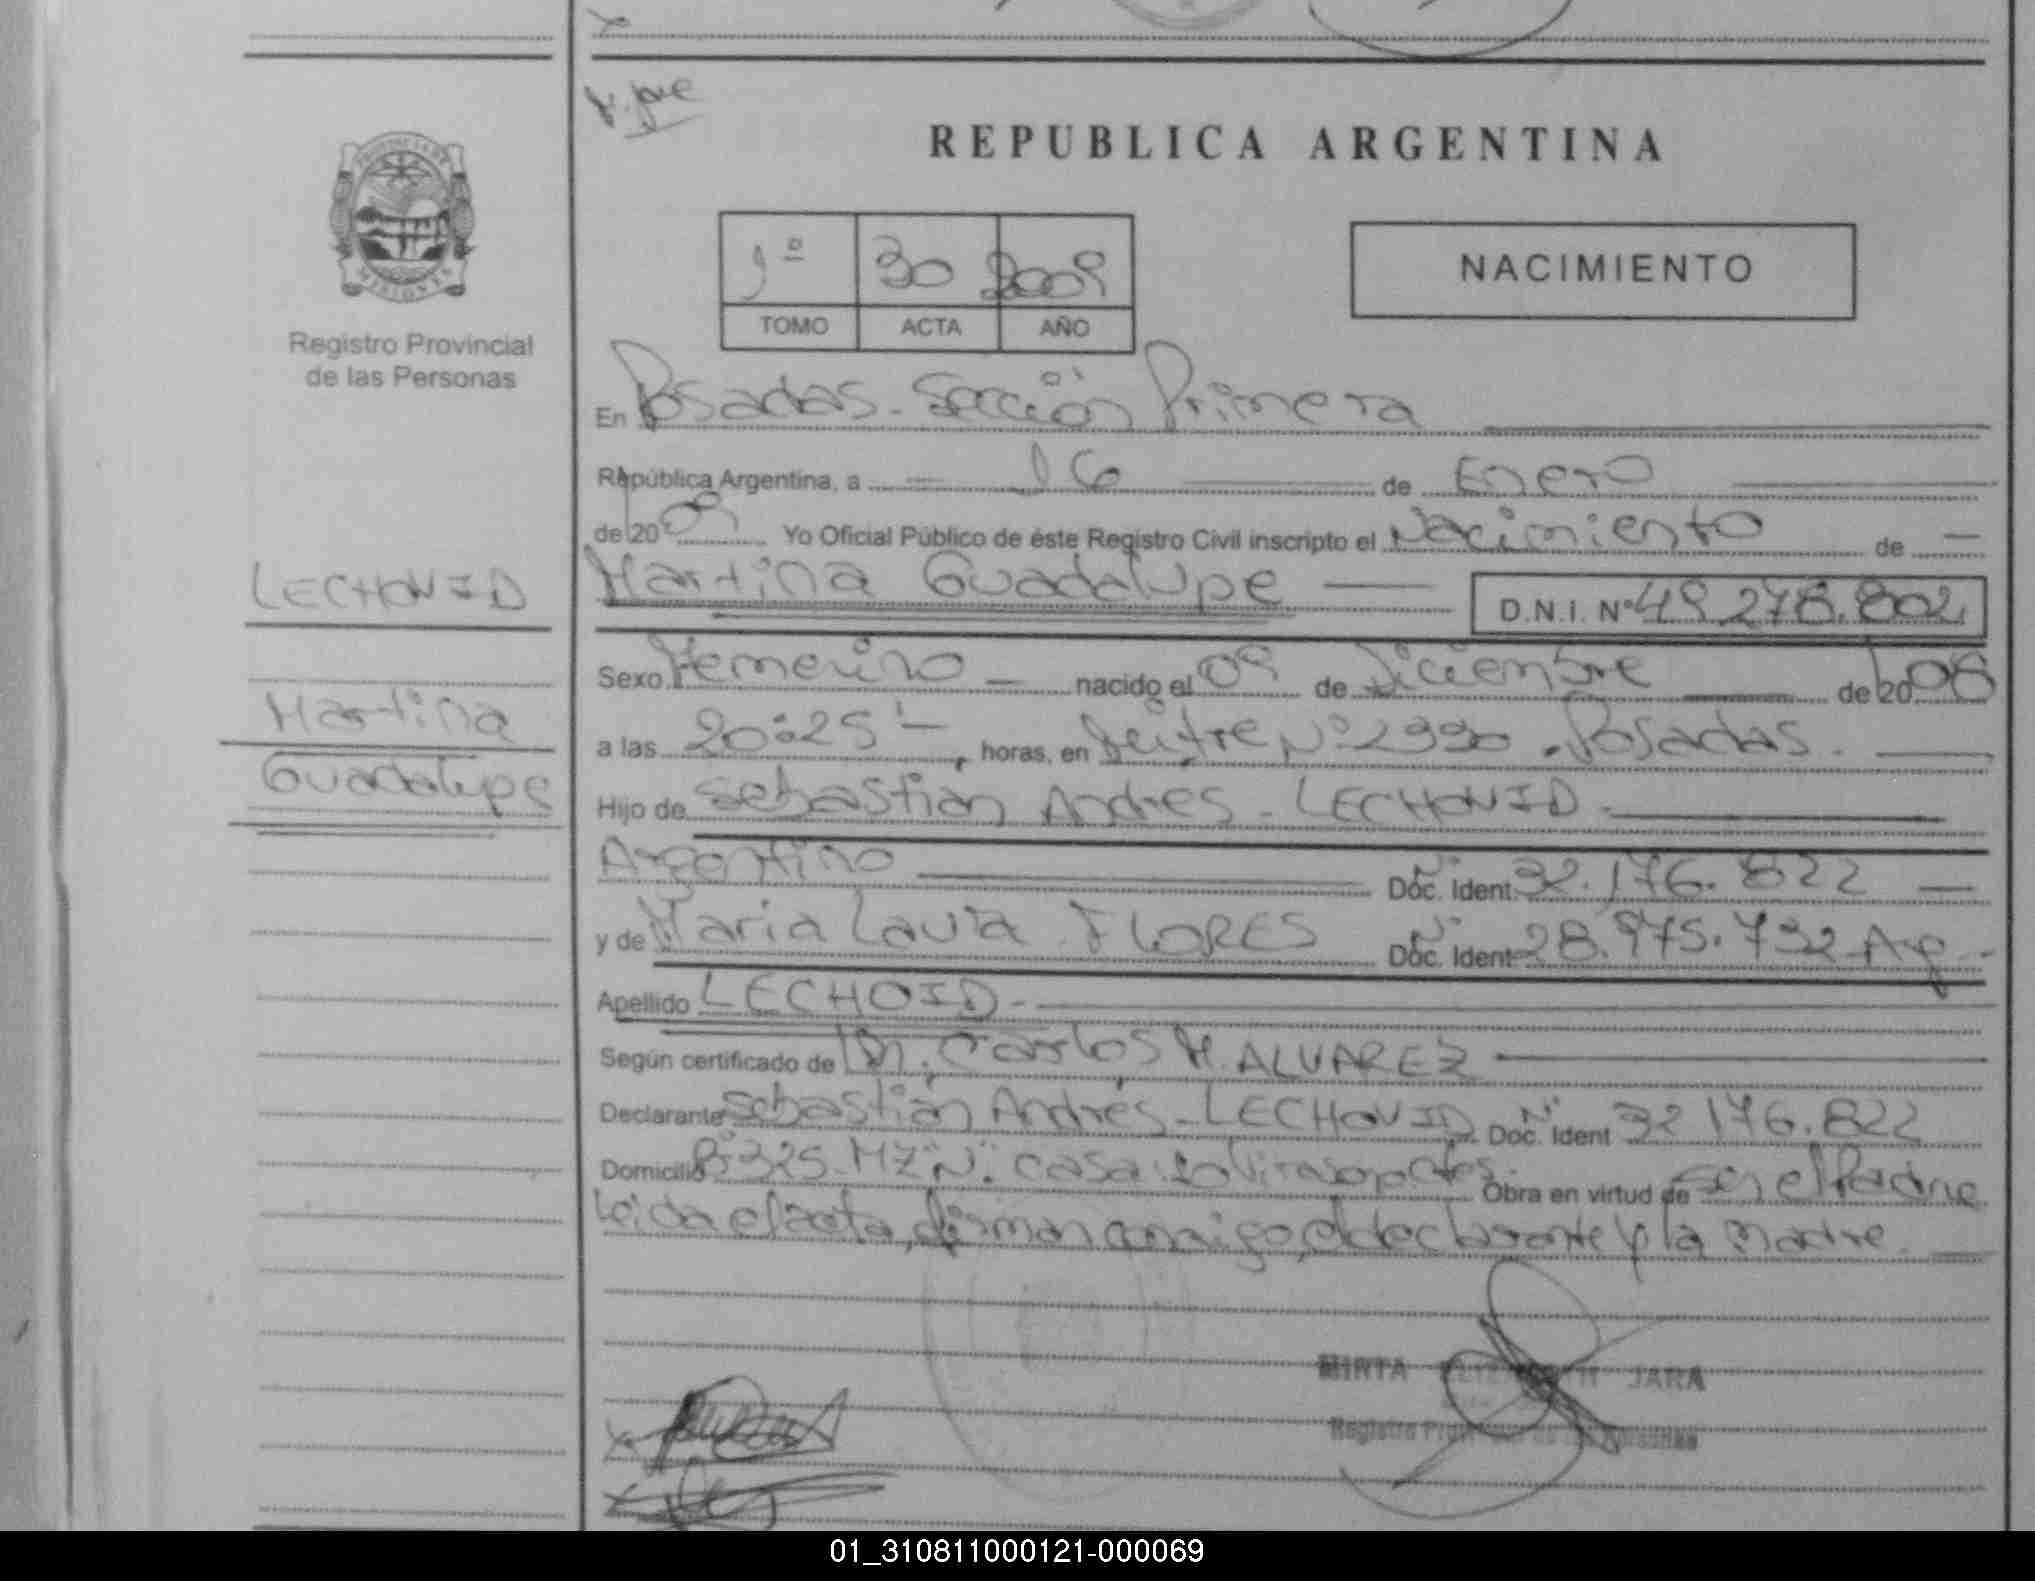 REPUBLICA ARGENTINA
1º 30 2009
TOMO ACTA AÑO
NACIMIENTO
PROVINCIA DE
MISIONES
Registro Provincial
de las Personas
En Posadas - Sección Primera
República Argentina, a 16 de Enero
de 20 09 Yo Oficial Público de éste Registro Civil inscripto el Nacimiento de
Martina Guadalupe
D.N.I. Nº 49.278.802
LECHOVID
Martina
Guadalupe
Sexo Femenino nacido el 09 de Diciembre de 20 08
a las 20:25' horas, en Nº 2990 . Posadas.
Hijo de Sebastián Andrés - LECHOVID
Argentino Doc. Ident. Nº 32.176.822
y de María Laura FLORES Doc. Ident. Nº 28.975.732 Ag
Apellido LECHOID
Según certificado de Dr. Carlos H. ALVAREZ
Declarante Sebastián Andrés - LECHOVID Doc. Ident Nº 32 176.822
Domicilio Bº 325 - MZ "N" casa: Obra en virtud de ser el Padre
Leida el acta, firman conmigo, el declarante y la madre.
MIRTA JARA
Registro
01_310811000121-000069